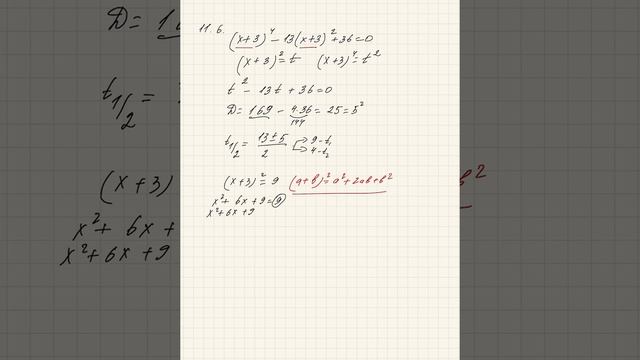 11.6.
(x+3)⁴ - 13(x+3)² + 36 = 0
(x+3)² = t (x+3)⁴ = t²
t² - 13t + 36 = 0
D = 169 - 4·36 = 25 = 5²
144
t1/2 = 13±5 / 2 → 9 - t₁
→ 4 - t₂
(x+3)² = 9 (a+b)² = a² + 2ab + b²
x² + 6x + 9 = 9
x² + 6x + 9